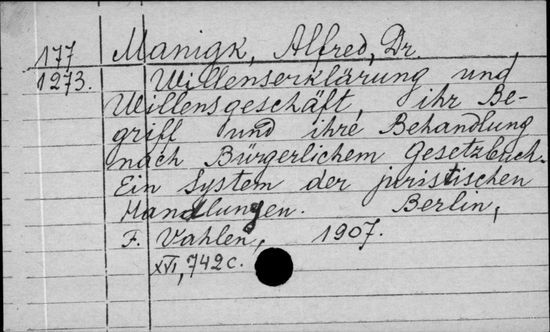 177 Manigk, Alfred, Dr.
1273. Willenserklärung und
Willensgeschäft, ihr Be-
griff und ihre Behandlung
nach Bürgerlichem Gesetzbuch.
Ein System der juristischen
Handlungen. Berlin,
F. Vahlen, 1907.
XVI, 742c.